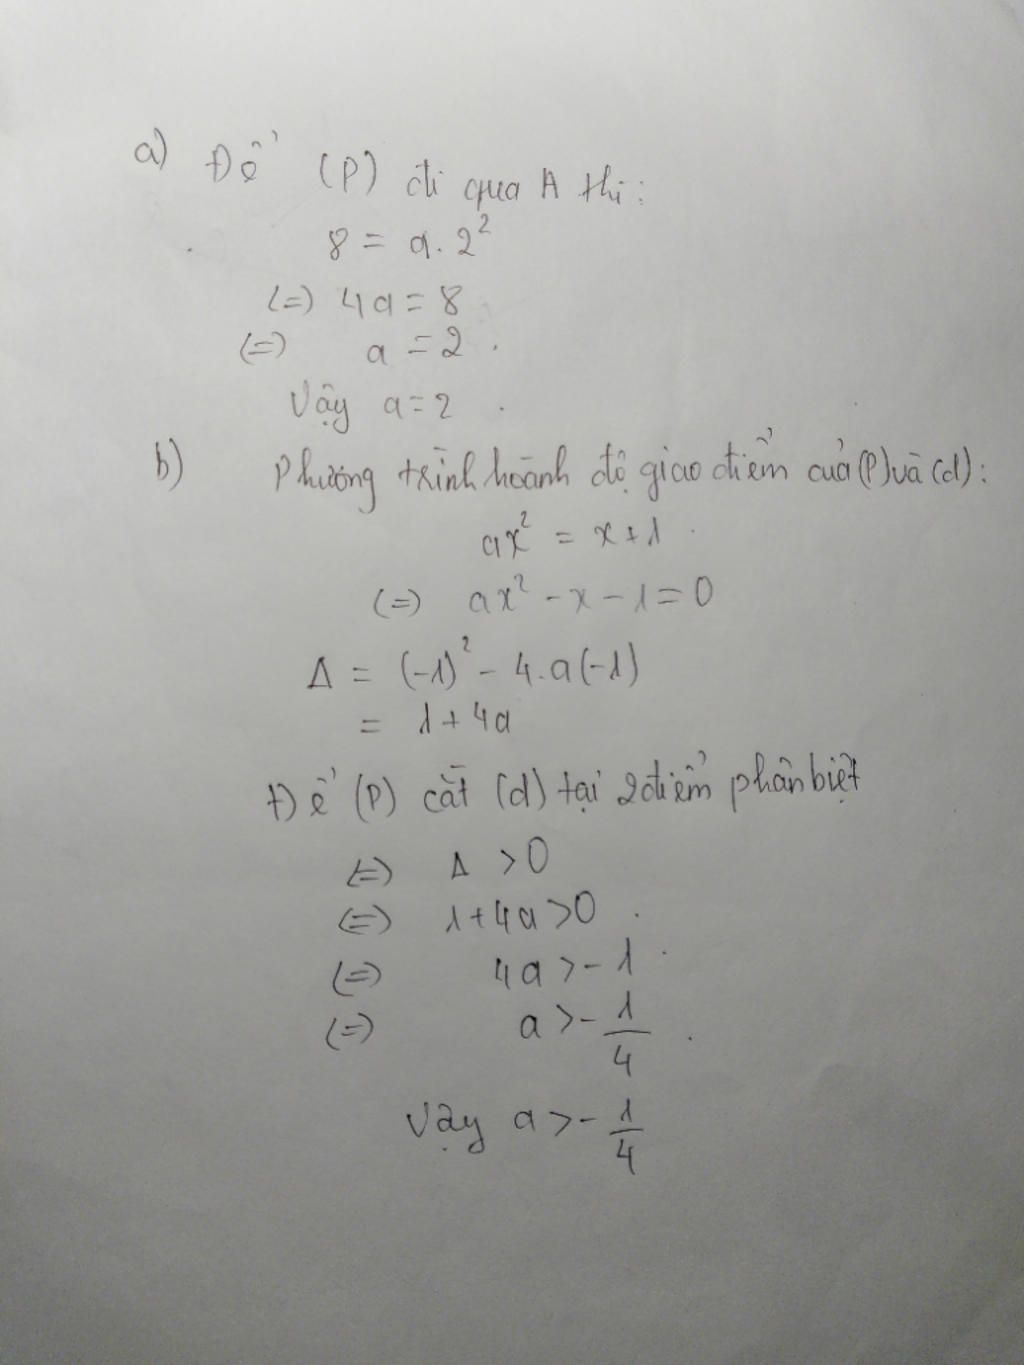 a) Để (P) đi qua A thì:
8 = a. 2²
(=) 4a = 8
(=) a = 2 .
Vậy a = 2 .
b) Phương trình hoành độ giao điểm của (P) và (d):
ax² = x + 1
(=) ax² - x - 1 = 0
Δ = (-1)² - 4.a(-1)
= 1 + 4a
Để (P) cắt (d) tại 2 điểm phân biệt
(=) Δ > 0
(=) 1 + 4a > 0 .
(=) 4a > - 1
(=) a > - 1/4 .
Vậy a > - 1/4